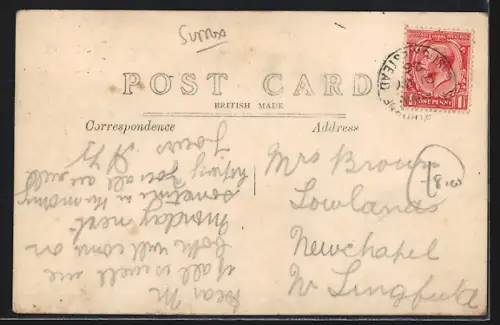 POST CARD
BRITISH MADE
Correspondence
Address
Dear M
if all is well we
both will come on
Monday next
sometime in the morning
hoping you all are well
Yours
Mrs Brown
Lowlands
Newchapel
Nr Lingfield
ONE PENNY
STEAD